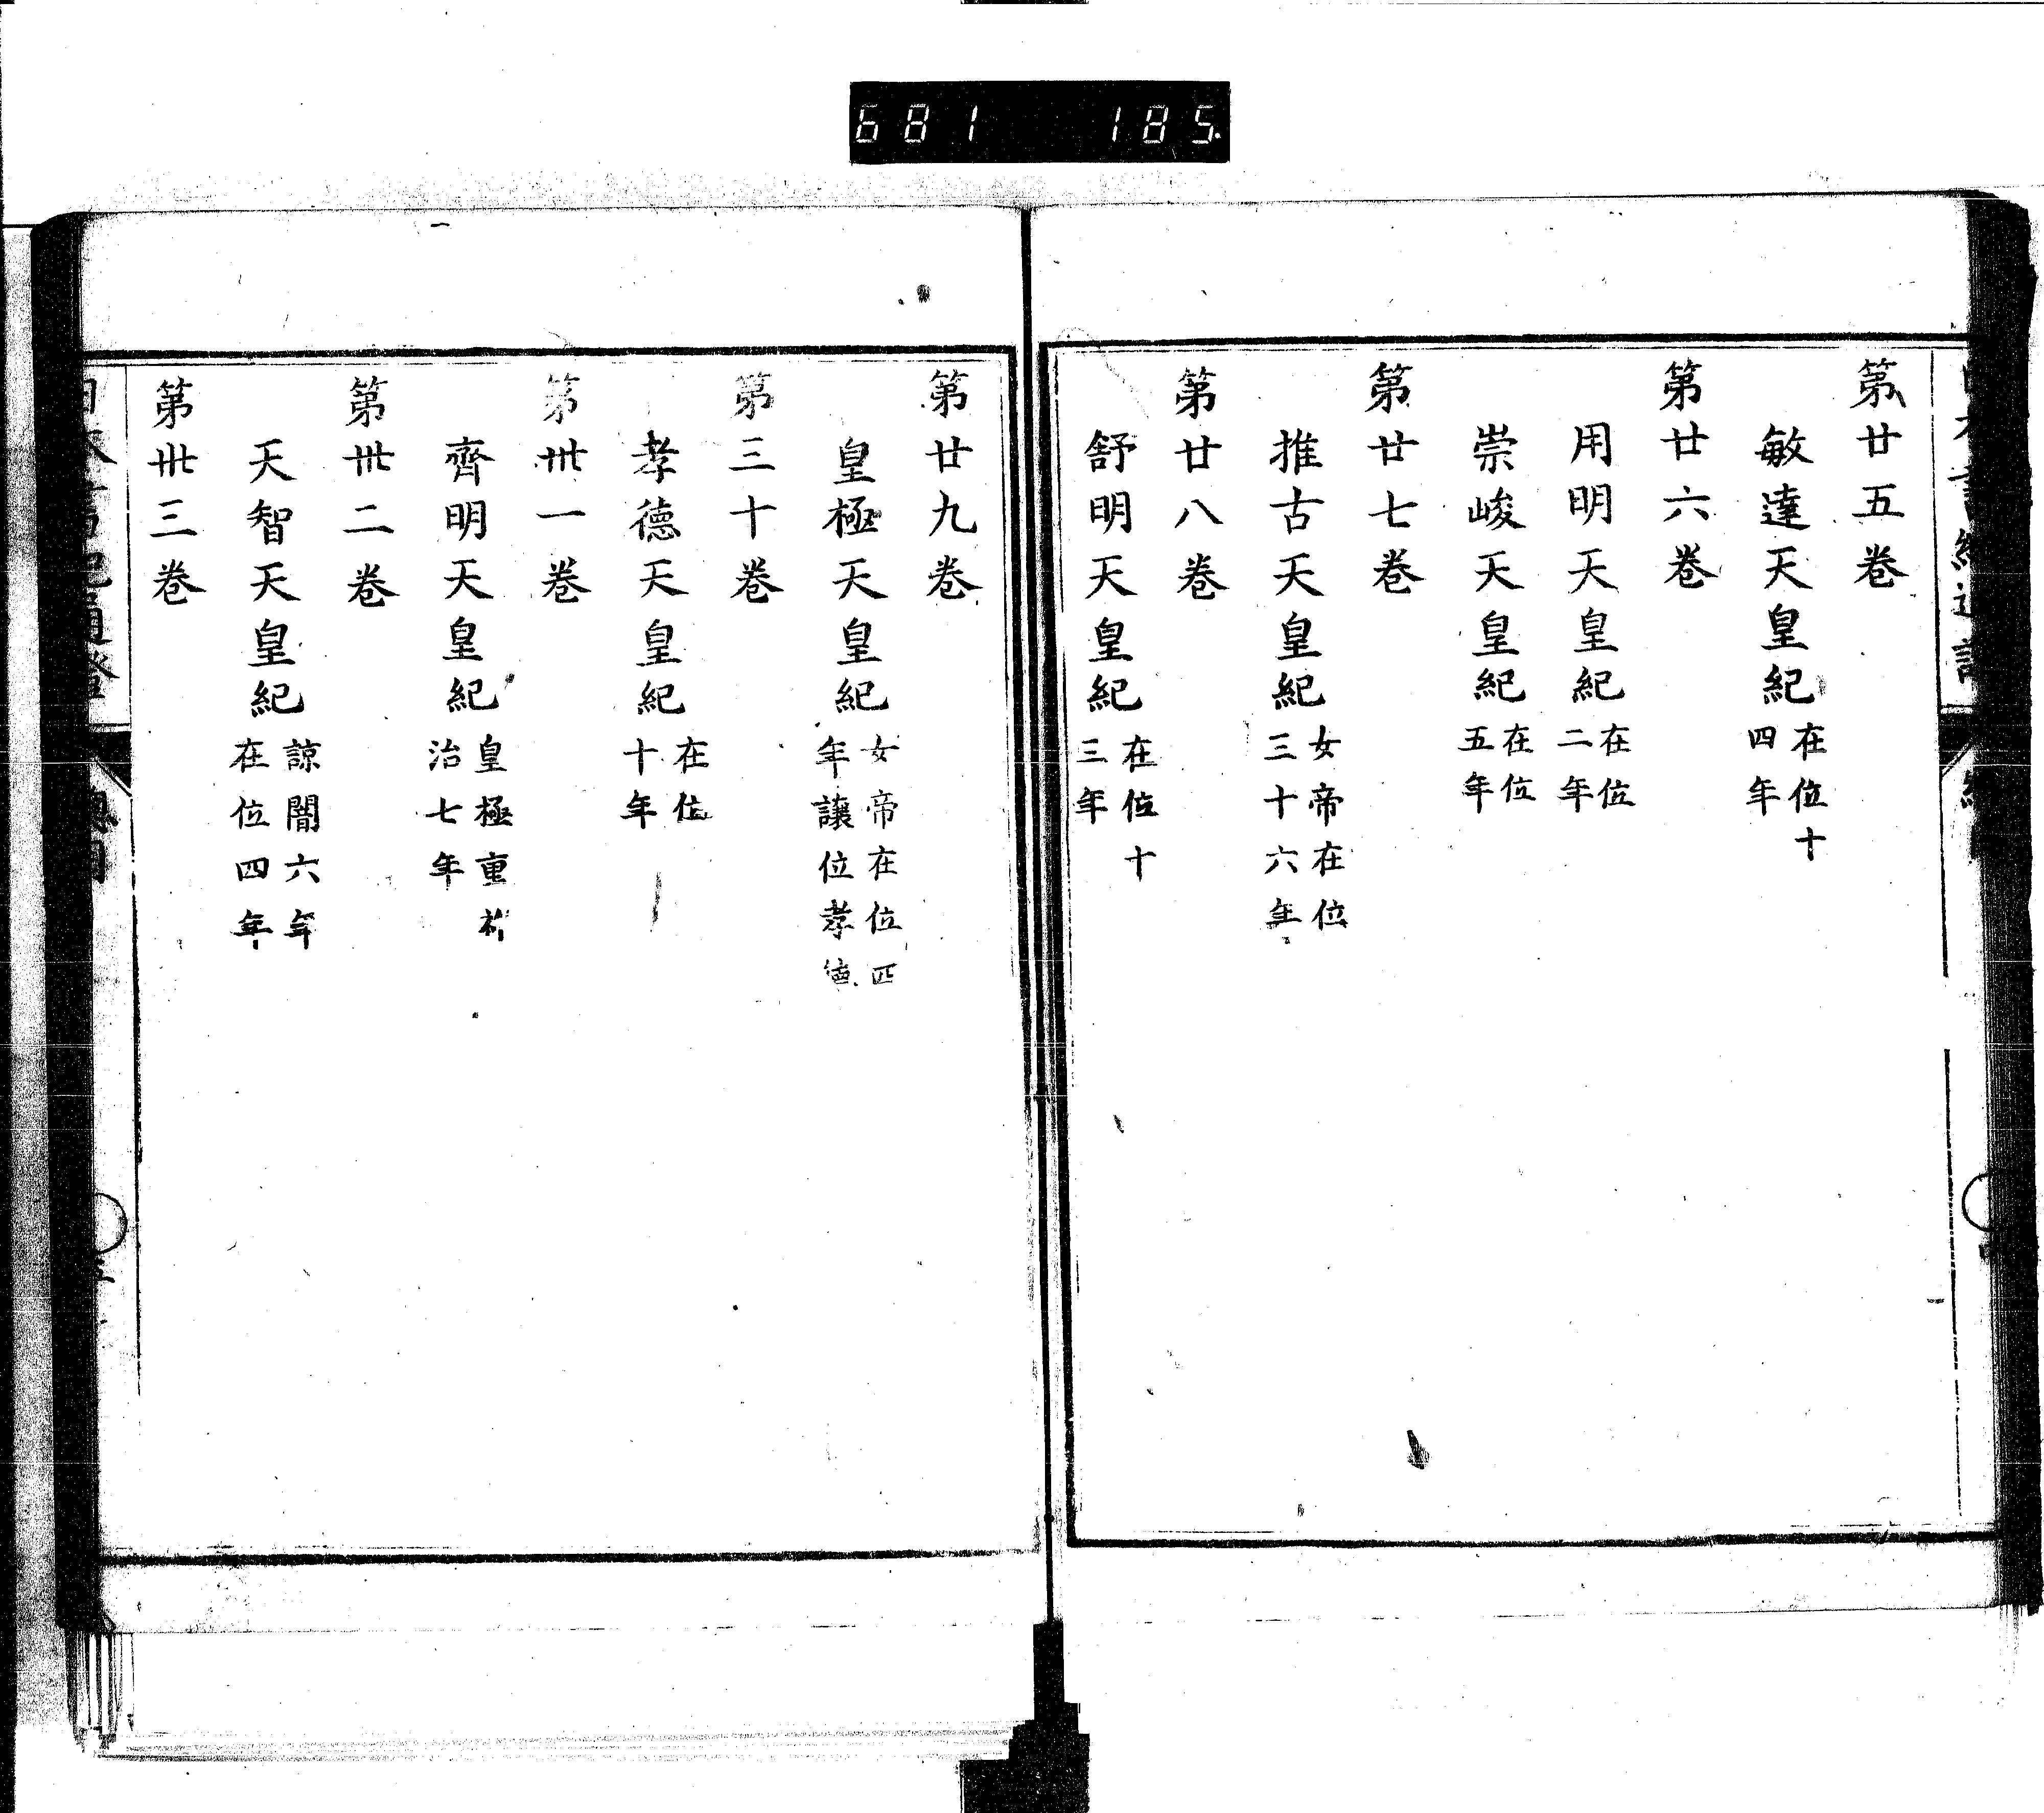 681 185
第廿五巻
敏達天皇紀 在位十四年
第廿六巻
用明天皇紀 在位二年
崇峻天皇紀 在位五年
第廿七巻
推古天皇紀 女帝在位三十六年
第廿八巻
舒明天皇紀 在位十三年
第廿九巻
皇極天皇紀 女帝在位四年讓位孝德
第三十巻
孝德天皇紀 在位十年
第卅一巻
齊明天皇紀 皇極重祚治七年
第卅二巻
天智天皇紀 諒闇六年在位四年
第卅三巻